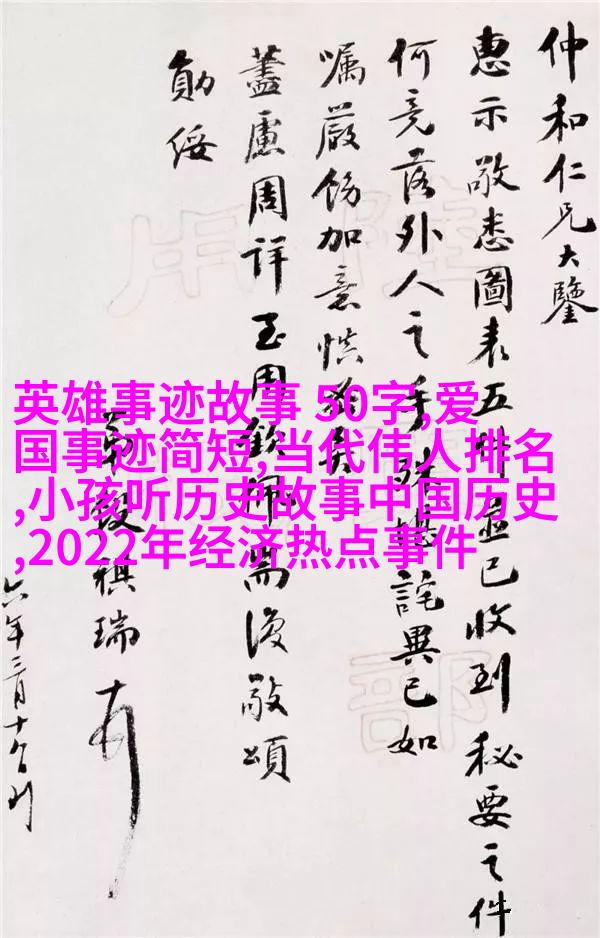 仲和仁兄大鑒
惠示敬悉圖表五冊並已收到秘要之件
何竟落外人之手殊堪詫異已如
囑嚴飭加意慎
藎慮周詳至用欽佩耑復敬頌
勛綏
段祺瑞
六年三月十
陸軍
部
英雄事迹故事 50字,爱
国事迹简短,当代伟人排名
,小孩听历史故事中国历史
,2022年经济热点事件